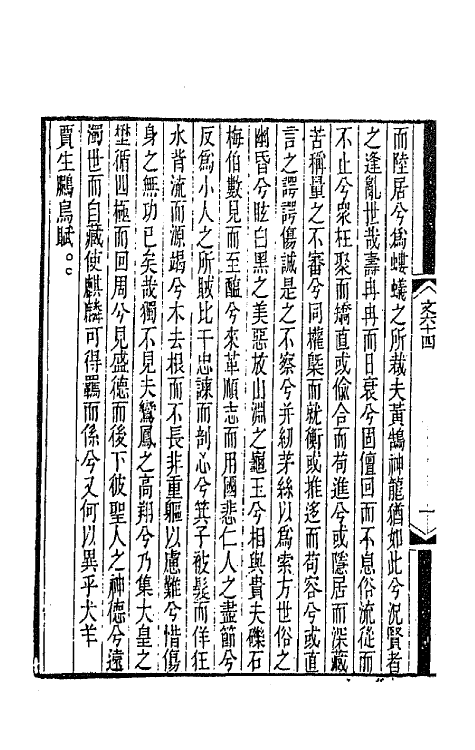 而陸居兮爲螻蟻之所裁夫黃鵠神龍猶如此兮況賢者
之逢亂世哉壽冉冉而日衰兮固儃回而不息俗流從而
不止兮衆枉聚而矯直或偷合而苟進兮或隱居而深藏
苦稱量之不審兮同權槩而就衡或推迻而苟容兮或直
言之諤諤傷誠是之不察兮并紉茅絲以爲索方世俗之
幽昏兮眩白黑之美惡放山淵之龜玉兮相與貴夫礫石
梅伯數見而至醢兮來革順志而用國悲仁人之盡節兮
反爲小人之所賊比干忠諫而剖心兮箕子被髮而佯狂
水背流而源竭兮木去根而不長非重軀以慮難兮惜傷
身之無功已矣哉獨不見夫鸞鳳之高翔兮乃集大皇之
壄循四極而回周兮見盛德而後下彼聖人之神德兮遠
濁世而自藏使麒麟可得羈而係兮又何以異乎犬羊
賈生鵩鳥賦
文六四
一